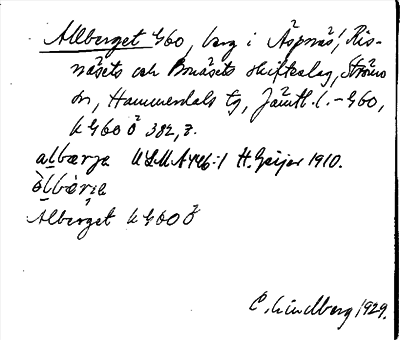 Allberget G60, berg i Äspnäs, Ris-
näsets och Bonäsets skifteslag, Ströms
sn, Hammerdals tg, Jämtl. l. – G60,
k G60 Ö 382, 3.
albærja ULMA 446:1 H. Geijer 1910.
àlbærja
Alberget k G60 Ö
C. Lindberg 1929.